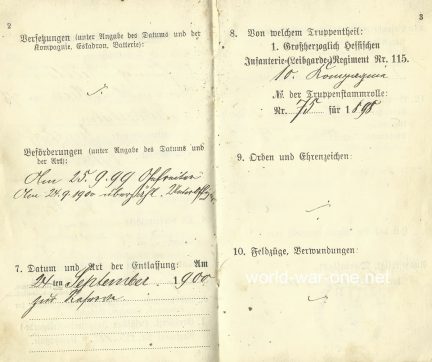 2
Versetzungen (unter Angabe des Datums und der
Kompagnie, Eskadron, Batterie):
Beförderungen (unter Angabe des Datums und
der Art):
Am 25.9.99 Gefreiter
Am 24.9.1900 überzähl. Unteroffz.
7. Datum und Art der Entlassung: Am
24ten September 1900
zur Reserve
3
8. Von welchem Truppentheil:
1. Großherzoglich Hessischen
Infanterie-(Leibgarde-)Regiment Nr. 115.
10. Kompagnie
№. der Truppenstammrolle:
Nr. 75 für 1898
9. Orden und Ehrenzeichen:
10. Feldzüge, Verwundungen:
world-war-one.net